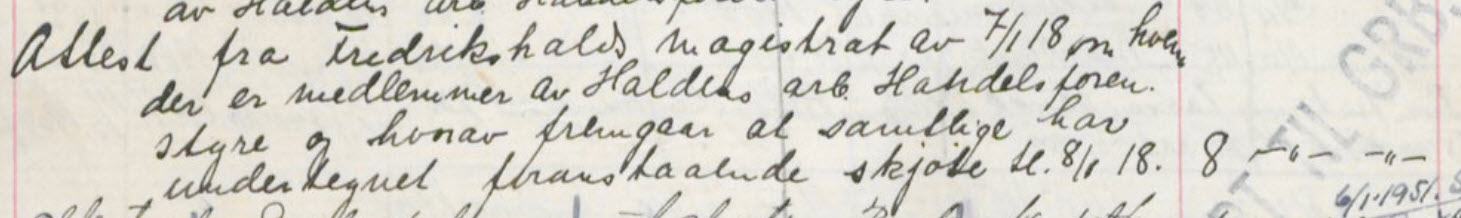 av Haldens arb. Handelsforen
Attest fra Fredrikshalds magistrat av 7/1 18 om hvem
der er medlemmer av Haldens arb. Handelsforen.
styre og hvorav fremgaar at samtlige har
undertegnet foranstaaende skjøte tl. 8/1 18. 8 —"— —"—
6/1.1951.
RT TIL GRB.